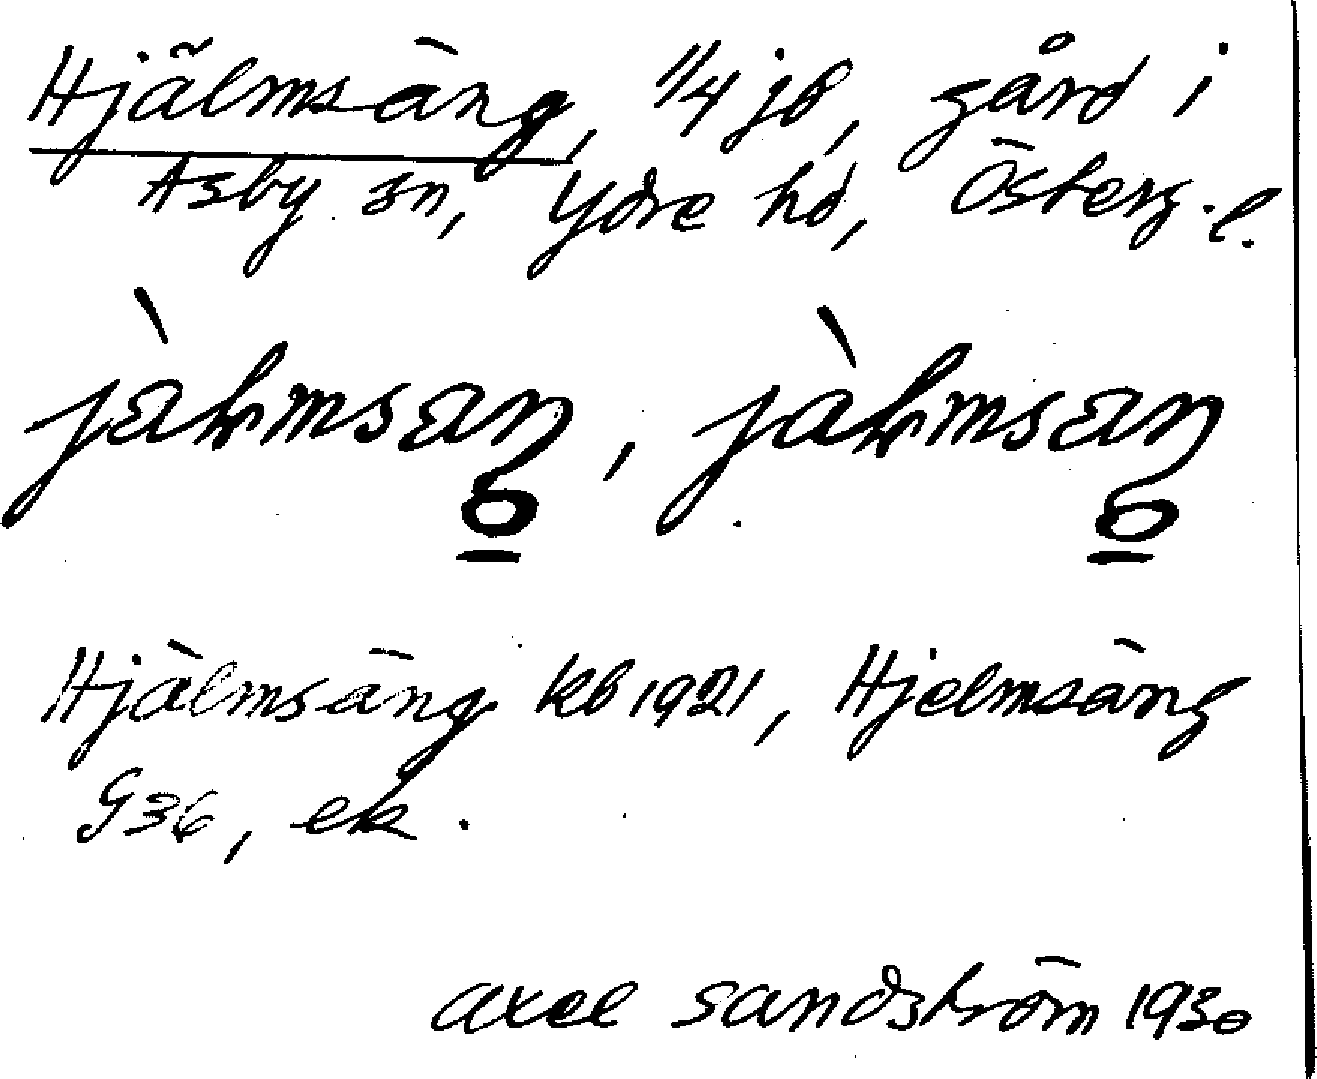 Hjälmsäng, 1/4 jb, gård i
Asby sn, Ydre hd, Österg.l.
Hjälmsäng kb 1921, Hjelmsäng
G36, ek.
Axel Sandström 1930